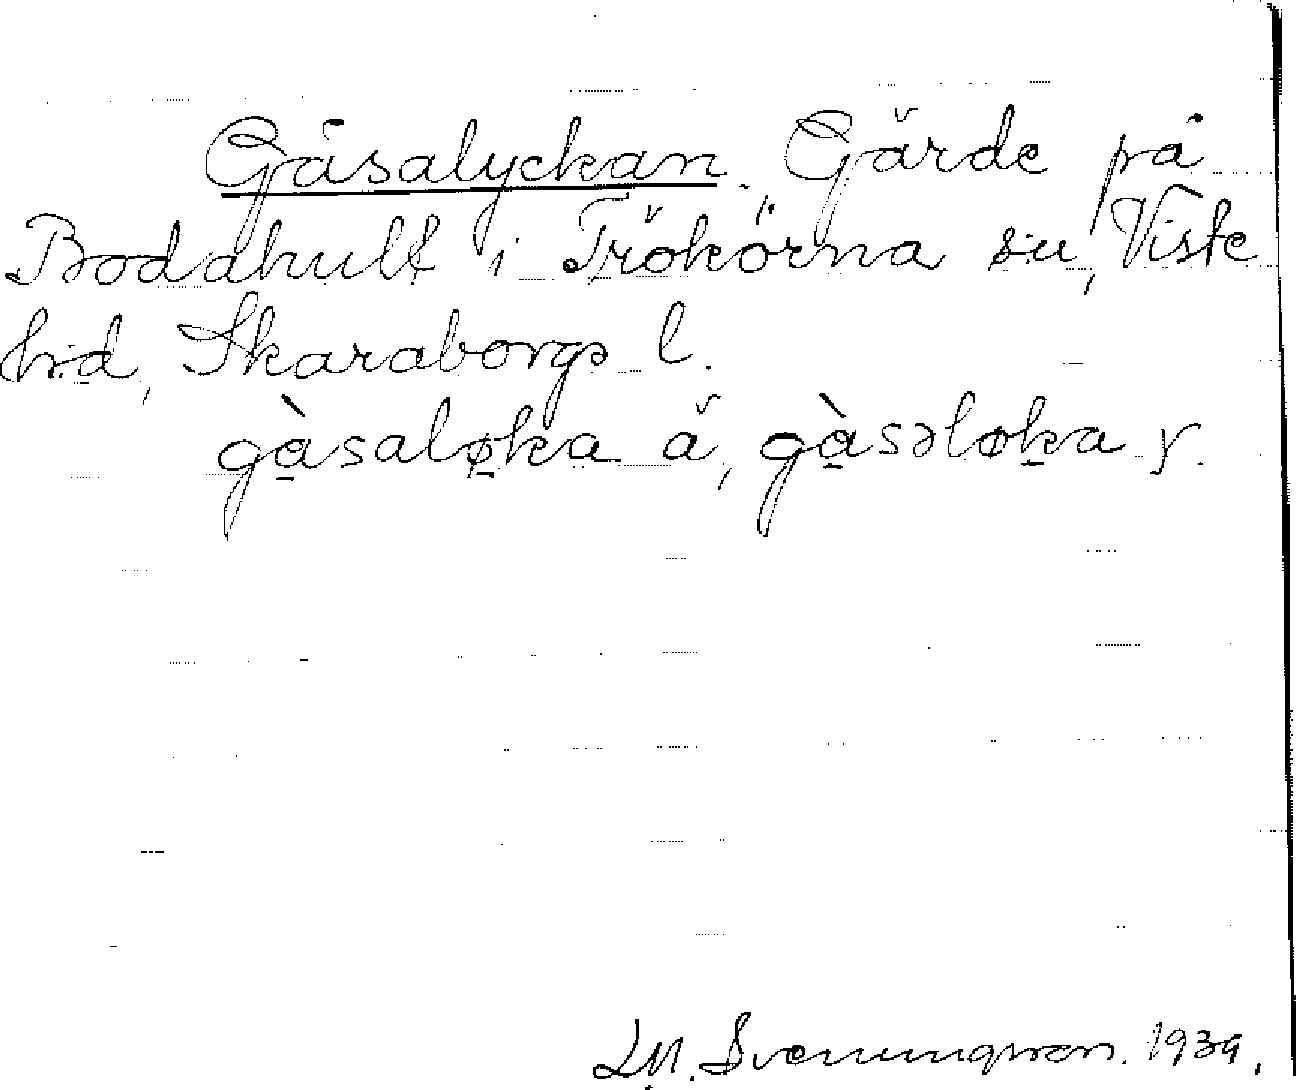 Gåsalyckan. Gärde på
Boddhult i Trökörna sn, Viste
hd, Skaraborgs l.
gàsaløka ä, gàsəløka y.
L.M. Svenungsson. 1939.